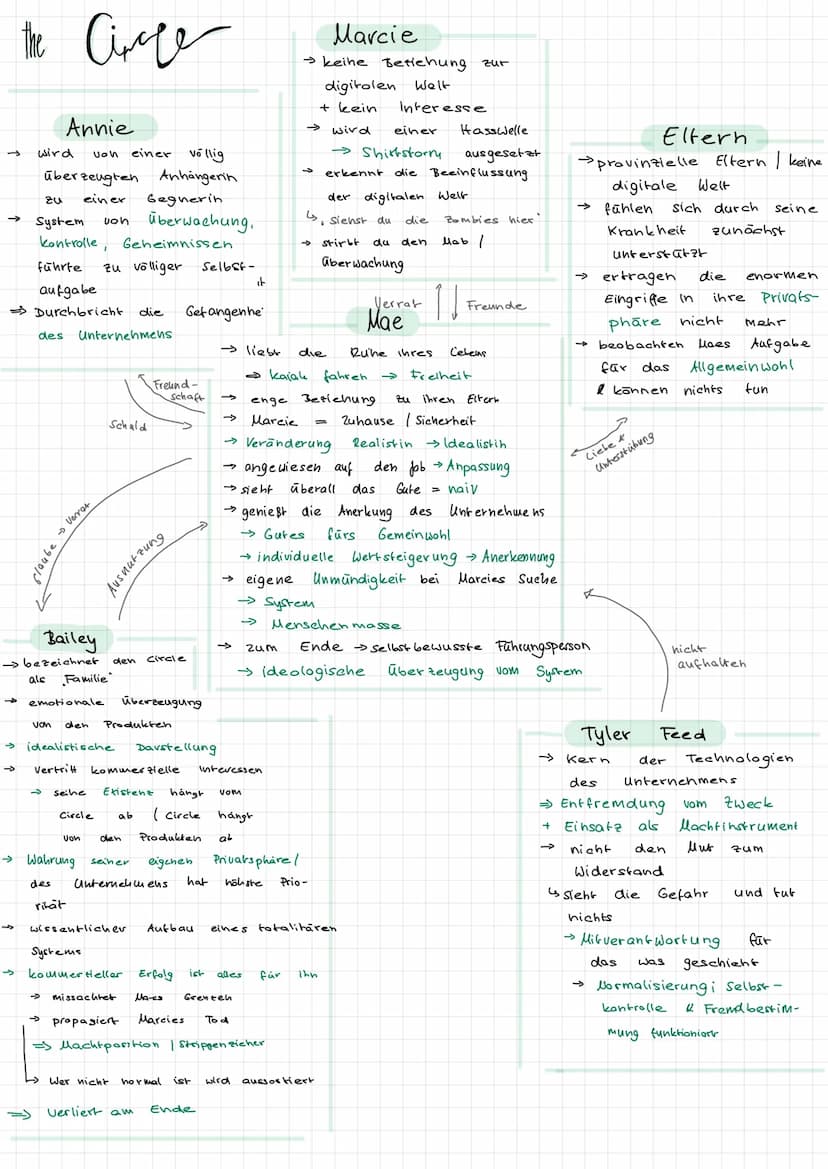 the Circle
Marcie
→ keine Beziehung zur
digitalen Welt
+ kein Interesse
→ wird einer Hasswelle
→ Shitstorm ausgesetzt
→ erkennt die Beeinflussung
der digitalen Welt
↳ „siehst du die Zombies hier"
→ stirbt du den Mob /
Überwachung
Annie
→ wird von einer völlig
überzeugten Anhängerin
zu einer Gegnerin
→ System von Überwachung,
Kontrolle, Geheimnissen
führte zu völliger Selbst-
aufgabe
⇒ Durchbricht die Gefangenheit
des Unternehmens
Eltern
→ provinzielle Eltern / keine
digitale Welt
→ fühlen sich durch seine
Krankheit zunächst
unterstützt
→ ertragen die enormen
Eingriffe in ihre Privats-
phäre nicht mehr
→ beobachten Maes Aufgabe
für das Allgemeinwohl
& können nichts tun
Verrat
Freunde
Mae
→ liebt die Ruhe ihres Lebens
⇒ Kajak fahren → Freiheit
→ enge Beziehung zu ihren Eltern
→ Marcie = Zuhause / Sicherheit
→ Veränderung Realistin → Idealistin
→ angewiesen auf den Job → Anpassung
→ sieht überall das Gute = naiv
→ genießt die Anerkung des Unternehmens
→ Gutes fürs Gemeinwohl
→ individuelle Wertsteigerung → Anerkennung
→ eigene Unmündigkeit bei Marcies Suche
→ System
→ Menschenmasse
→ zum Ende → selbstbewusste Führungsperson
→ ideologische Überzeugung vom System
Freund-
schaft
Schald
Liebe &
Unterstützung
Glaube → Verrat
Ausnutzung
nicht
aufhalten
Bailey
→ bezeichnet den Circle
als „Familie"
→ emotionale Überzeugung
von den Produkten
→ idealistische Darstellung
→ vertritt kommerzielle Interessen
→ seine Existenz hängt vom
Circle ab / Circle hängt
von den Produkten ab
→ Wahrung seiner eigenen Privatsphäre /
des Unternehmens hat höhste Prio-
rität
→ wissentlicher Aufbau eines totalitären
Systems
→ kommerzieller Erfolg ist alles für ihn
→ missachtet Maes Grenzen
→ propagiert Marcies Tod
⇒ Machtposition / Strippenzieher
↳ Wer nicht normal ist wird aussortiert
⇒ verliert am Ende
Tyler Feed
→ Kern der Technologien
des Unternehmens
⇒ Entfremdung vom Zweck
+ Einsatz als Machtinstrument
→ nicht den Mut zum
Widerstand
↳ sieht die Gefahr und tut
nichts
→ Mitverantwortung für
das was geschieht
→ Normalisierung; Selbst-
kontrolle & Fremdbestim-
mung funktioniert